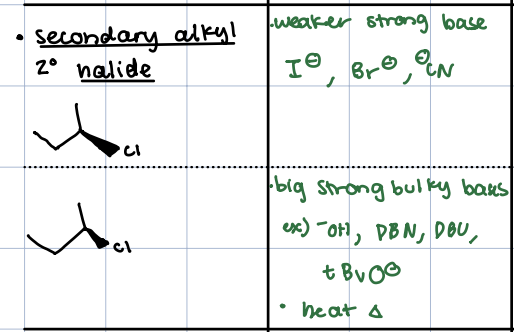 • secondary alkyl
2° halide
Cl
Cl
• weaker strong base
I⊖, Br⊖, ⊖CN
• big strong bulky bases
ex) ⁻OH, DBN, DBU,
tBuO⊖
• heat Δ